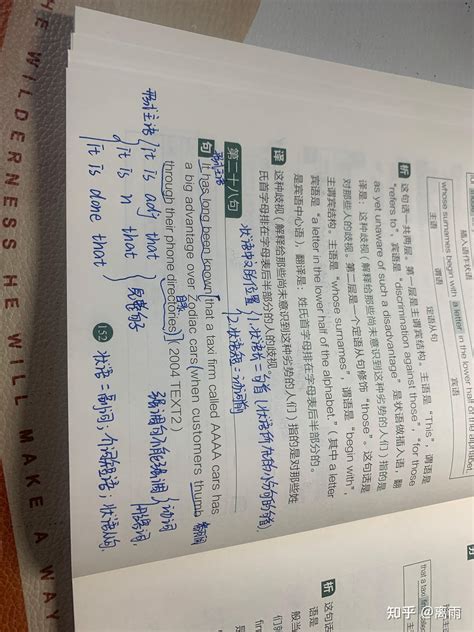 插入语作状语
whose surnames begin with a letter in the lower half of the alphabet
主语
谓语
定语从句
宾语
析 这句话一共两层。第一层是主谓宾结构，主语是 “This”，谓语是
“refers to”，宾语是 “discrimination against those”，“for those
as yet unaware of such a disadvantage” 是状语做插入语，翻
译是：这种歧视（解释给那些尚未意识到这种劣势的人们）指的是
对那些人的歧视。第二层是一个定语从句修饰 “those”。这句话是
主谓宾结构。主语是 “whose surnames”，谓语是 “begin with”，
宾语是 “a letter in the lower half of the alphabet,”（其中 a letter
是宾语中心语），翻译是：姓氏首字母排在字母表后半部分的。
译 这种歧视（解释给那些尚未意识到这种劣势的人们）指的是对那些姓
氏首字母排在字母表后半部分的人的歧视。
第二十八句
状语中文的位置
1.状语于句首（状语所在的小句的句首）
2.状语短=动词前
形式主语
句 It has long been known that a taxi firm called AAAA cars has
a big advantage over Zodiac cars when customers thumb 翻阅
through their phone directories. (2004 TEXT2)
形式主语
it is adj that
it is n that
it is done that
完整句子
强调句不能强调
动词
形容词
152
状语=副词；介词短语；状语从句
析 这句话
般当
语是
that a taxi firm
主语
知乎 @离雨
THE WILDERNESS HE WILL MAKE A WAY